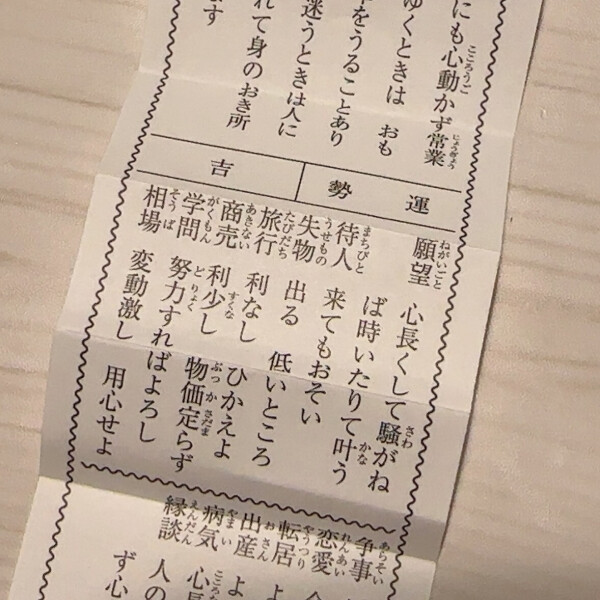 にも心動かず常業
ゆくときは おも
をうることあり
迷うときは人に
れて身のおき所
ます
運勢 吉
願望 心長くして騒がね
ば時いたりて叶う
待人 来てもおそい
失物 出る 低いところ
旅行 利なし ひかえよ
商売 利少し 物価定らず
学問 努力すればよろし
相場 変動激し 用心せよ
争事
恋愛
転居 よ
出産 よ
病気 心長
縁談 人の
ず心